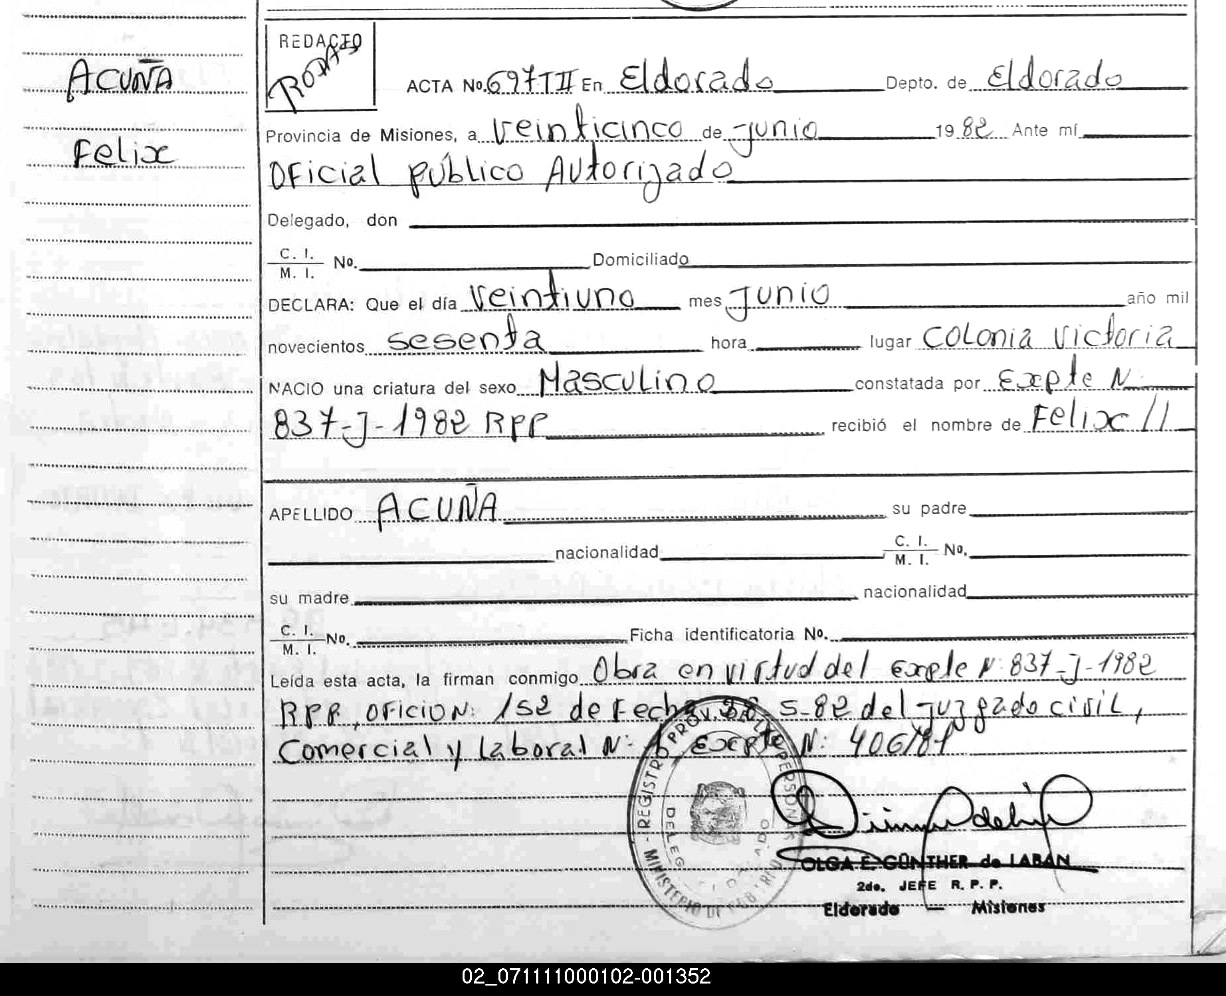 ACUÑA
Felix
REDACTO
RODAS
ACTA No. 697 T II En Eldorado Depto. de Eldorado
Provincia de Misiones, a veinticinco de junio 1982 Ante mí
Oficial público Autorizado
Delegado, don
C. I.
M. I. No. Domiciliado
DECLARA: Que el día veintiuno mes junio año mil
novecientos sesenta hora lugar Colonia Victoria
NACIO una criatura del sexo Masculino constatada por Expte N
837-J-1982 RPP recibió el nombre de Felix //
APELLIDO ACUÑA su padre
nacionalidad C. I.
M. I. No.
su madre nacionalidad
C. I.
M. I. No. Ficha identificatoria No.
Leída esta acta, la firman conmigo Obra en virtud del expte N: 837-J-1982
RPP, oficio N: 152 de Fecha 5-82 del juzgado civil,
Comercial y Laboral N: Expte N: 406/81
REGISTRO PROV. DE LAS PERSONAS
MINISTERIO DE
OLGA E. GÜNTHER de LABÁN
2do. JEFE R. P. P.
Eldorado — Misiones
02_071111000102-001352